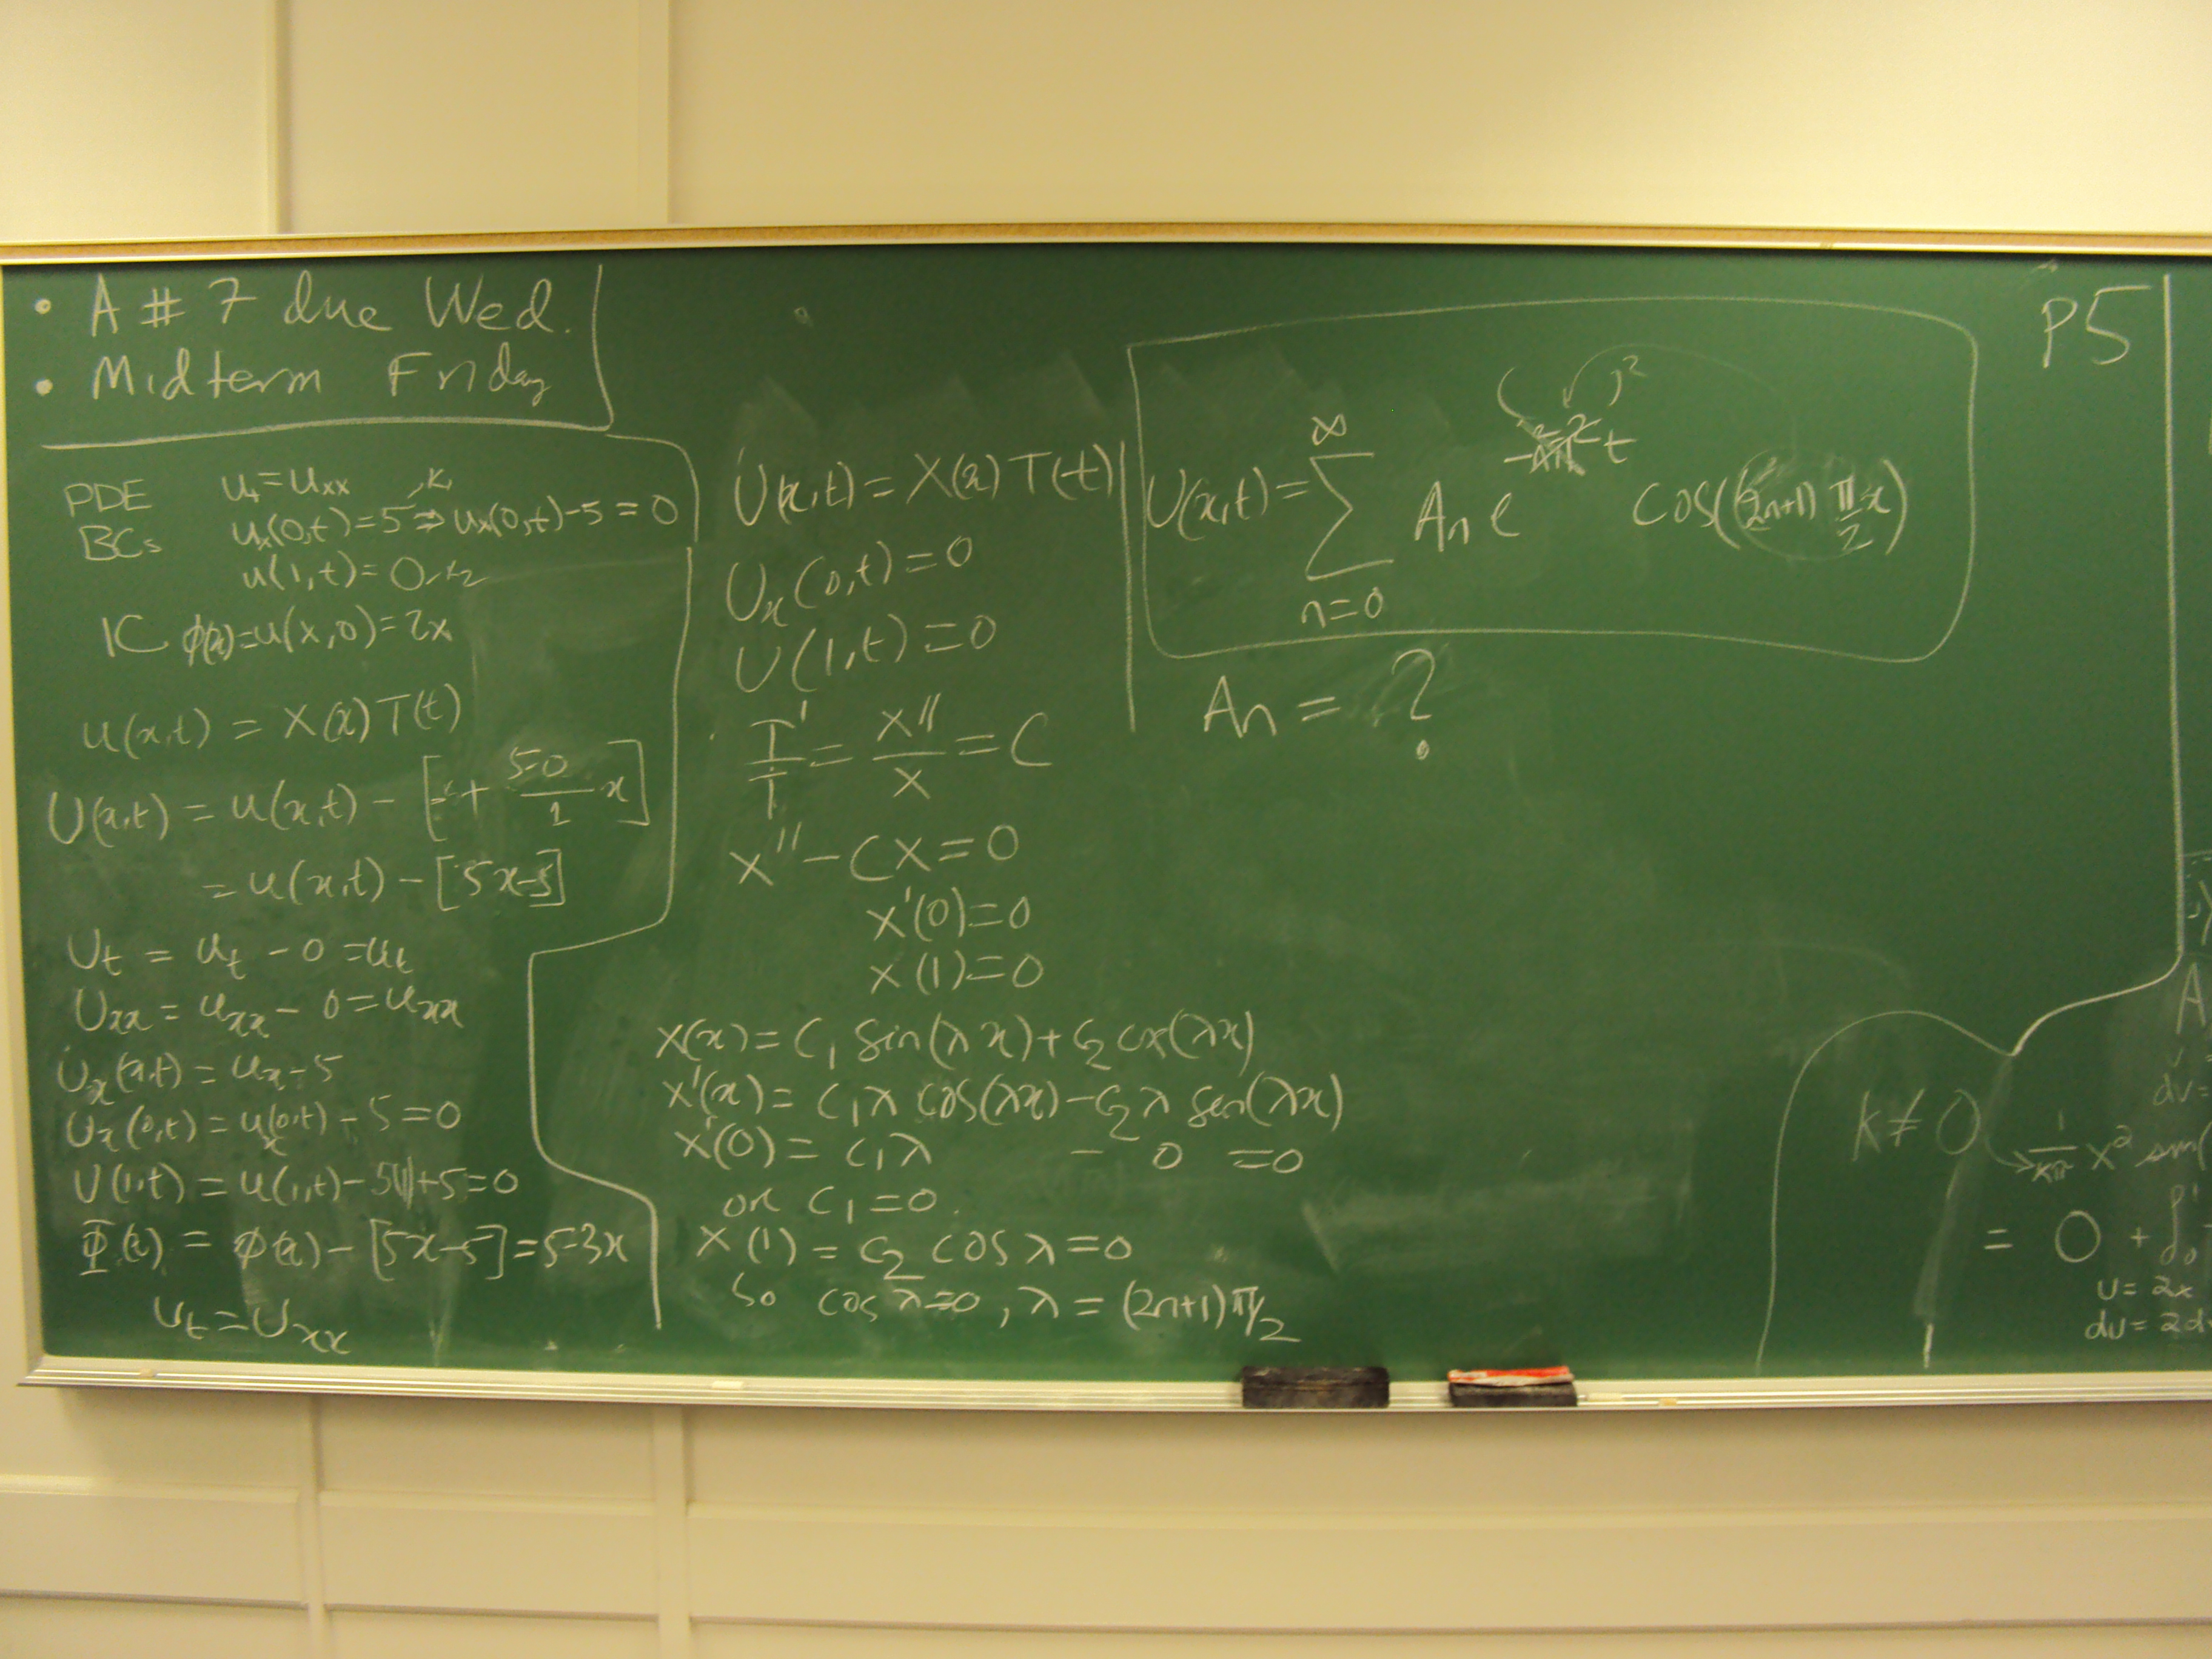 • A # 7 due Wed.
• Midterm Friday
PDE u_t = u_xx
BCs u_x(0,t) = 5 ⇒ u_x(0,t) - 5 = 0
u(1,t) = 0
IC φ(x) = u(x,0) = 2x
u(x,t) = X(x) T(t)
U(x,t) = u(x,t) - [ + 5-0/1 x]
= u(x,t) - [5x-5]
U_t = u_t - 0 = u_t
U_xx = u_xx - 0 = u_xx
U_x(x,t) = u_x - 5
U_x(0,t) = u_x(0,t) - 5 = 0
U(1,t) = u(1,t) - 5(1) + 5 = 0
Φ(x) = φ(x) - [5x-5] = 5-3x
U_t = U_xx
U(x,t) = X(x) T(t)
U_x(0,t) = 0
U(1,t) = 0
T'/T = X''/X = C
X'' - CX = 0
X'(0) = 0
X(1) = 0
X(x) = C_1 sin(λx) + C_2 cos(λx)
X'(x) = C_1 λ cos(λx) - C_2 λ sin(λx)
X'(0) = C_1 λ - 0 = 0
or C_1 = 0.
X(1) = C_2 cos λ = 0
So cos λ = 0, λ = (2n+1)π/2
P5
U(x,t) = ∑_{n=0}^{∞} A_n e^{-( )² t} cos((2n+1) π/2 x)
A_n = ?
k ≠ 0
1/kπ x² sin(
= 0 + ∫_0^1
u = 2x
du = 2d
A
dv =